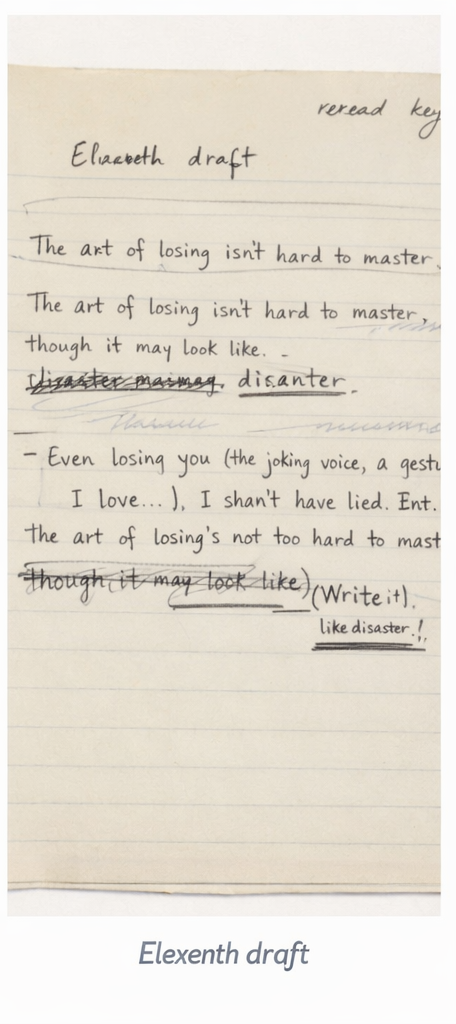 reread key
Eliazbeth draft
The art of losing isn't hard to master.
The art of losing isn't hard to master,
though it may look like. -
disanter.
– Even losing you (the joking voice, a gestu
I love...), I shan't have lied. Ent.
the art of losing's not too hard to mast
though it may look like) (Write it).
like disaster.!
Elexenth draft